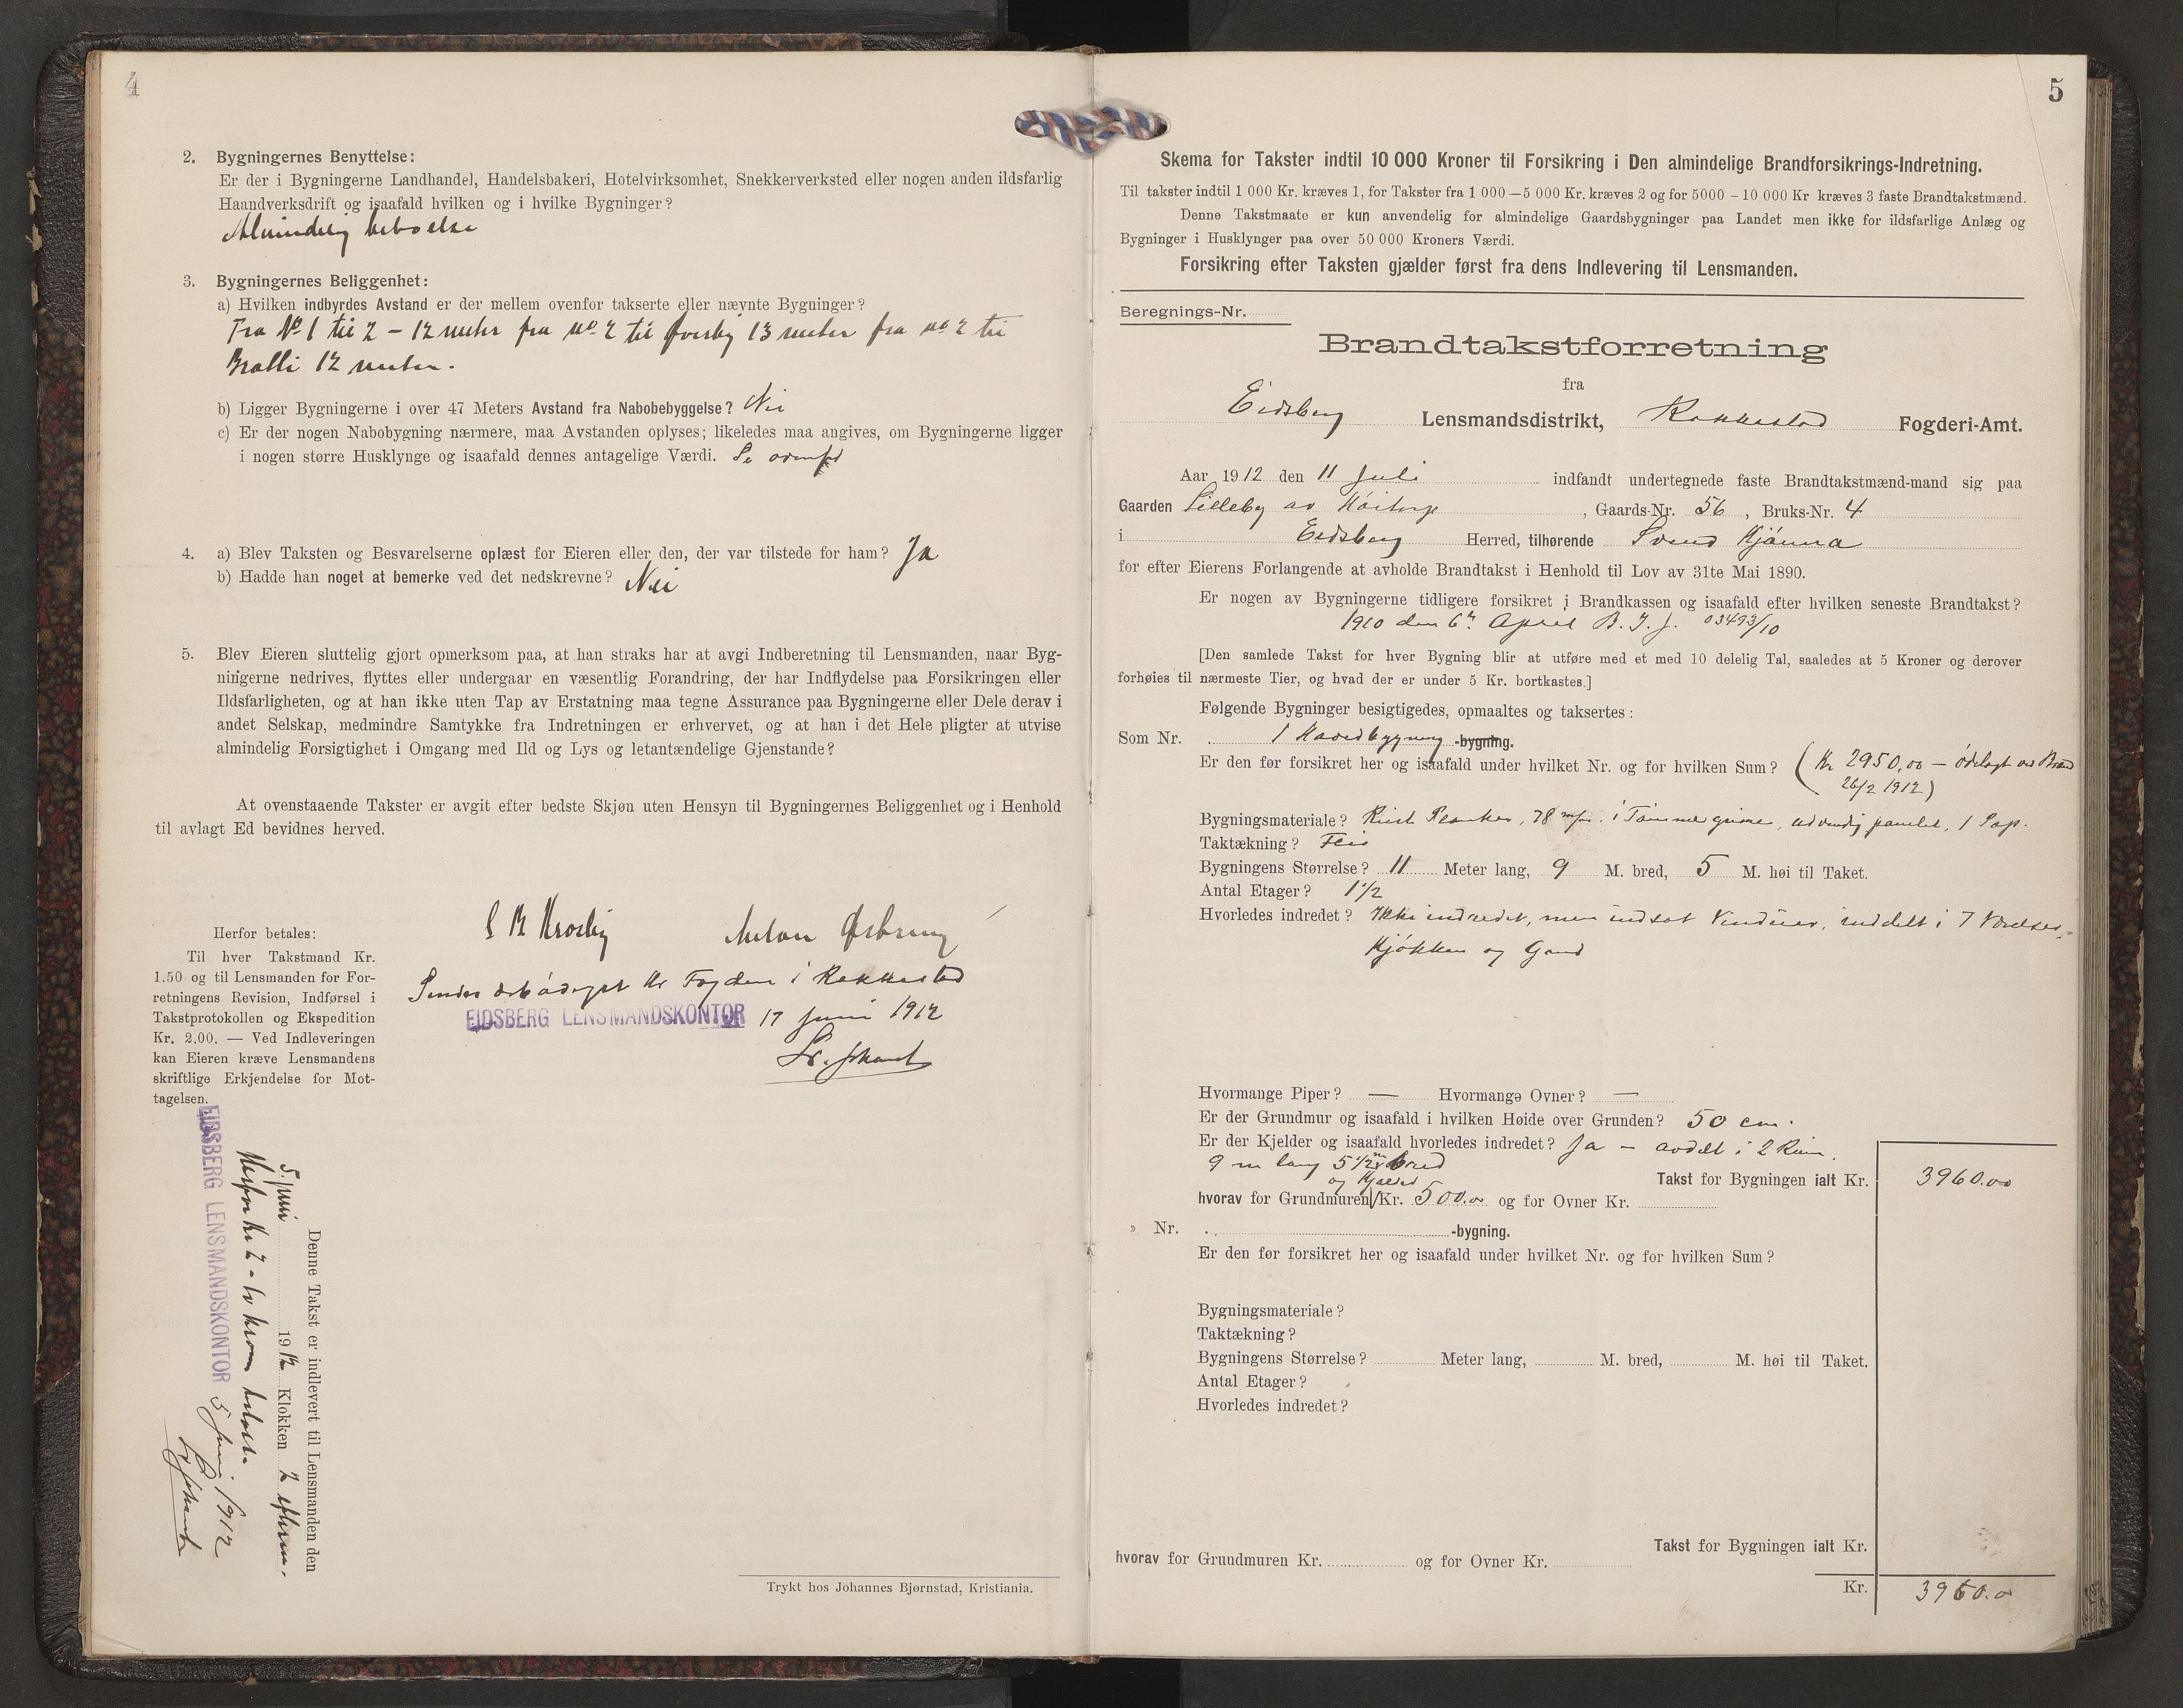 4
2. Bygningernes Benyttelse:
Er der i Bygningerne Landhandel, Handelsbakeri, Hotelvirksomhet, Snekkerverksted eller nogen anden ildsfarlig
Haandverksdrift og isaafald hvilken og i hvilke Bygninger?
Almindelig beboelse
3. Bygningernes Beliggenhet:
a) Hvilken indbyrdes Avstand er der mellem ovenfor takserte eller nævnte Bygninger?
Fra No 1 til 2 – 12 meter fra no 2 til Øverby 13 meter fra no 2 til
Bratli 12 meter.
b) Ligger Bygningerne i over 47 Meters Avstand fra Nabobebyggelse? Nei
c) Er der nogen Nabobygning nærmere, maa Avstanden oplyses; likeledes maa angives, om Bygningerne ligger
i nogen større Husklynge og isaafald dennes antagelige Værdi. Se ovenfor
4. a) Blev Taksten og Besvarelserne oplæst for Eieren eller den, der var tilstede for ham? Ja
b) Hadde han noget at bemerke ved det nedskrevne? Nei
5. Blev Eieren sluttelig gjort opmerksom paa, at han straks har at avgi Indberetning til Lensmanden, naar Byg-
ningerne nedrives, flyttes eller undergaar en væsentlig Forandring, der har Indflydelse paa Forsikringen eller
Ildsfarligheten, og at han ikke uten Tap av Erstatning maa tegne Assurance paa Bygningerne eller Dele derav i
andet Selskap, medmindre Samtykke fra Indretningen er erhvervet, og at han i det Hele pligter at utvise
almindelig Forsigtighet i Omgang med Ild og Lys og letantændelige Gjenstande?
At ovenstaaende Takster er avgit efter bedste Skjøn uten Hensyn til Bygningernes Beliggenhet og i Henhold
til avlagt Ed bevidnes herved.
Herfor betales:
Til hver Takstmand Kr.
1.50 og til Lensmanden for For-
retningens Revision, Indførsel i
Takstprotokollen og Ekspedition
Kr. 2.00. — Ved Indleveringen
kan Eieren kræve Lensmandens
skriftlige Erkjendelse for Mot-
tagelsen.
Anton
Fogden i Rakkestad
EIDSBERG LENSMANDSKONTOR 17 juni 1912
Denne Takst er indlevert til Lensmanden den
5. juni 1912 Klokken 2 efterm.
Herfor Kr 2 – to kroner betalt.
EIDSBERG LENSMANDSKONTOR 5 juni 1912
Trykt hos Johannes Bjørnstad, Kristiania.
5
Skema for Takster indtil 10 000 Kroner til Forsikring i Den almindelige Brandforsikrings-Indretning.
Til takster indtil 1 000 Kr. kræves 1, for Takster fra 1 000 — 5 000 Kr. kræves 2 og for 5000 – 10 000 Kr kræves 3 faste Brandtakstmænd.
Denne Takstmaate er kun anvendelig for almindelige Gaardsbygninger paa Landet men ikke for ildsfarlige Anlæg og
Bygninger i Husklynger paa over 50 000 Kroners Værdi.
Forsikring efter Taksten gjælder først fra dens Indlevering til Lensmanden.
Beregnings-Nr.
Brandtakstforretning
fra
Eidsberg Lensmandsdistrikt, Rakkestad Fogderi-Amt.
Aar 1912 den 11 juli indfandt undertegnede faste Brandtakstmænd-mand sig paa
Gaarden Lilleby av Høitorp, Gaards-Nr. 56, Bruks-Nr. 4
i Eidsberg Herred, tilhørende Svend Kjønna
for efter Eierens Forlangende at avholde Brandtakst i Henhold til Lov av 31te Mai 1890.
Er nogen av Bygningerne tidligere forsikret i Brandkassen og isaafald efter hvilken seneste Brandtakst?
1910 den 6te April B. I. J. 03493/10
[Den samlede Takst for hver Bygning blir at utføre med et med 10 delelig Tal, saaledes at 5 Kroner og derover
forhøies til nærmeste Tier, og hvad der er under 5 Kr. bortkastes.]
Følgende Bygninger besigtigedes, opmaaltes og taksertes:
Som Nr. 1 Hovedbygning -bygning.
Er den før forsikret her og isaafald under hvilket Nr. og for hvilken Sum? (Kr 2950,00 – ødelagt ved Brand
26/2 1912)
Bygningsmateriale? Planker, 78 m/m. i Tømmergrime, udvendig panelet, 1 Pap.
Taktækning? Flis
Bygningens Størrelse? 11 Meter lang, 9 M. bred, 5 M. høi til Taket.
Antal Etager? 1½
Hvorledes indredet? Ikke indredet, men indsat Vinduer, inddelt i 7 Værelser,
Kjøkken og Gand
Hvormange Piper? — Hvormange Ovner? —
Er der Grundmur og isaafald i hvilken Høide over Grunden? 50 cm.
Er der Kjelder og isaafald hvorledes indredet? Ja – avdelt i 2 Rum.
9 m lang 5½ m bred
Takst for Bygningen ialt Kr. 3960.00
og Kjælder
hvorav for Grundmuren Kr. 500.00 og for Ovner Kr.
» Nr. -bygning.
Er den før forsikret her og isaafald under hvilket Nr. og for hvilken Sum?
Bygningsmateriale?
Taktækning?
Bygningens Størrelse? Meter lang, M. bred, M. høi til Taket.
Antal Etager?
Hvorledes indredet?
Takst for Bygningen ialt Kr.
hvorav for Grundmuren Kr. og for Ovner Kr.
Kr. 3960.0